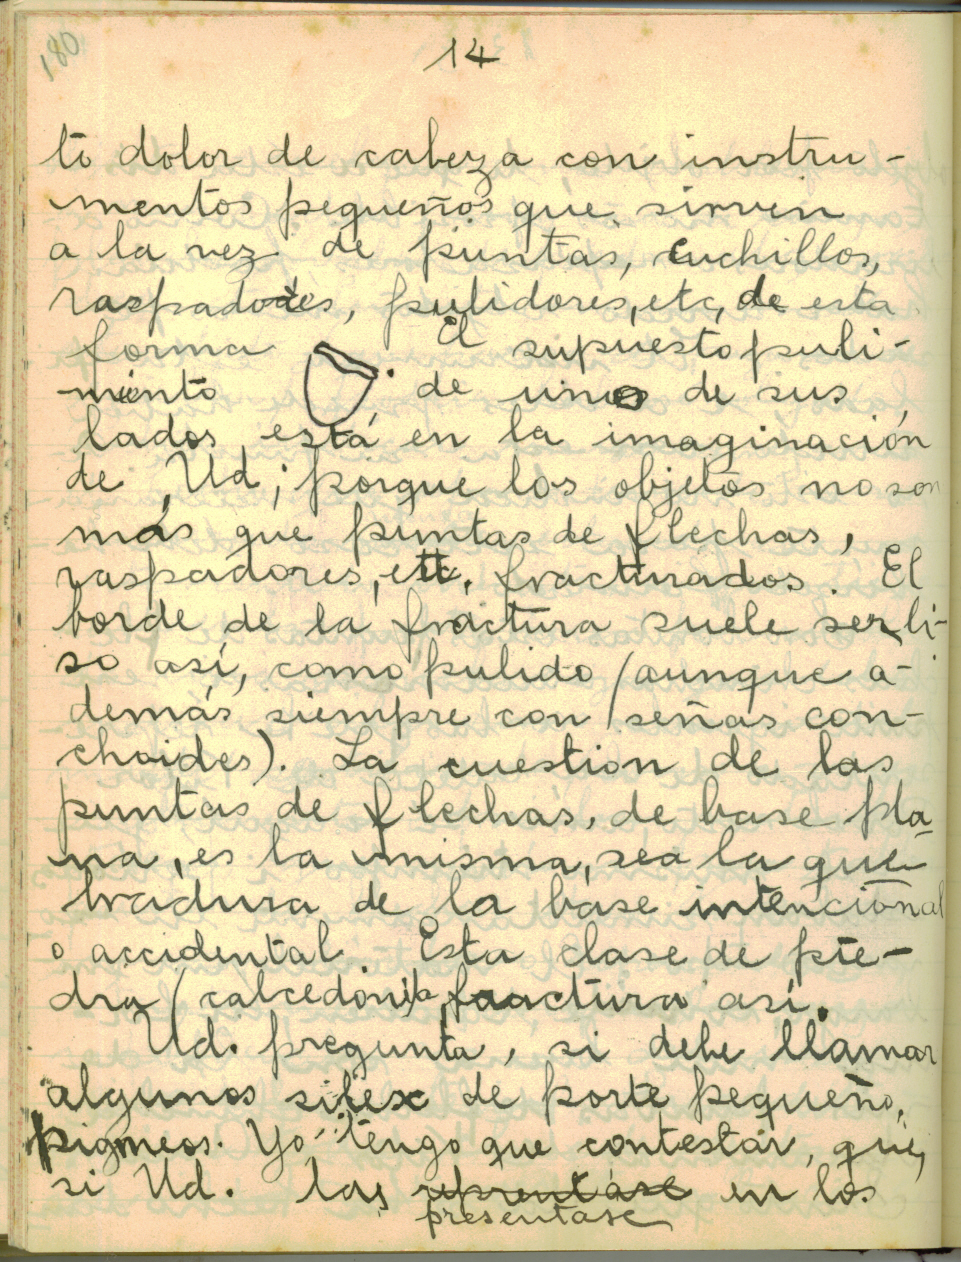 180
14
to dolor de cabeza con instru-
mentos pequeños que sirven
a la vez de puntas, cuchillos,
raspadores, pulidores, etc, de esta
forma El supuesto puli-
mento de uno de sus
lados está en la imaginación
de Ud; porque los objetos no son
más que puntas de flechas,
raspadores, etc. fracturados. El
borde de la fractura suele ser li-
so así, como pulido (aunque a-
demás siempre con señas con-
choides). La cuestion de las
puntas de flechas, de base pla-
na, es la misma, sea la que-
bradura de la base intencional
o accidental. Esta clase de pie-
dra (calcedonia) fractura así.
Ud. pregunta, si debe llamar
algunos silex de porte pequeño,
pigmeos. Yo tengo que contestar, que,
si Ud. las en los
presentase